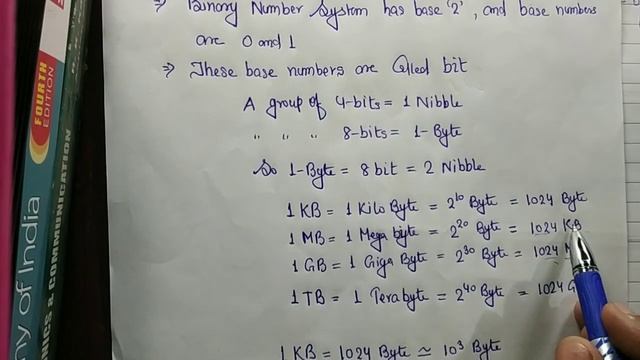 ⇒ Binary Number System has base '2', and base numbers
are 0 and 1
⇒ These base numbers are Called bit
A group of 4-bits = 1 Nibble
" " " 8-bits = 1-Byte
So 1-Byte = 8 bit = 2 Nibble
1 KB = 1 Kilo Byte = 2¹⁰ Byte = 1024 Byte
1 MB = 1 Mega byte = 2²⁰ Byte = 1024 KB
1 GB = 1 Giga Byte = 2³⁰ Byte = 1024
1 TB = 1 Terabyte = 2⁴⁰ Byte = 1024
1 KB = 1024 Byte ≃ 10³ Byte
FOURTH
EDITION
of India
& COMMUNICATION